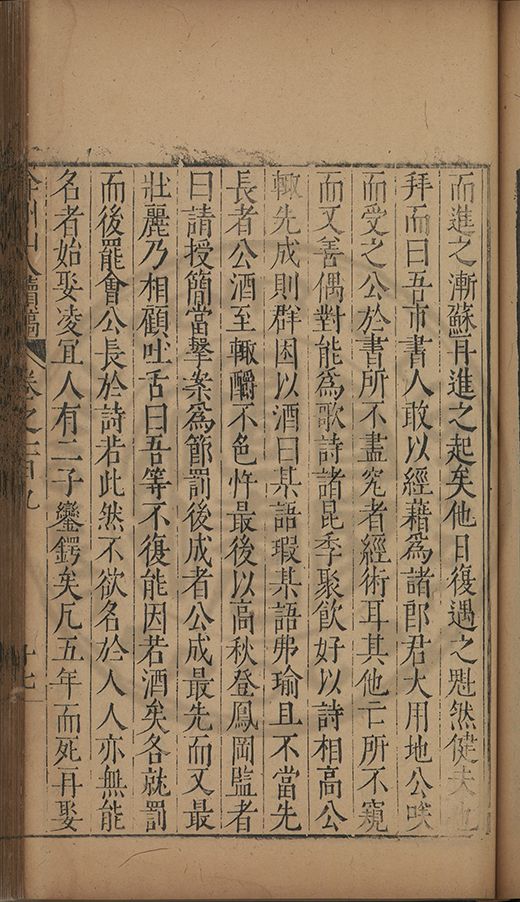 而進之漸蘇再進之起矣他日復遇之魁然健夫也
拜而曰吾市書人敢以經藉為諸郎君大用地公咲
而受之公於書所不盡究者經術耳其他亡所不窺
而又善偶對能為歌詩諸昆季聚飲好以詩相高公
輙先成則群困以酒曰某語瑕某語弗瑜且不當先
長者公酒至輙釂不色忤最後以高秋登鳳岡監者
曰請授簡當擊案為節罰後成者公成最先而又最
壯麗乃相顧吐舌曰吾等不復能因若酒矣各就罰
而後罷會公長於詩若此然不欲名於人人亦無能
名者始娶凌宜人有二子鑾鍔矣凡五年而死再娶
弇州山人續稿 卷之一百九 十七